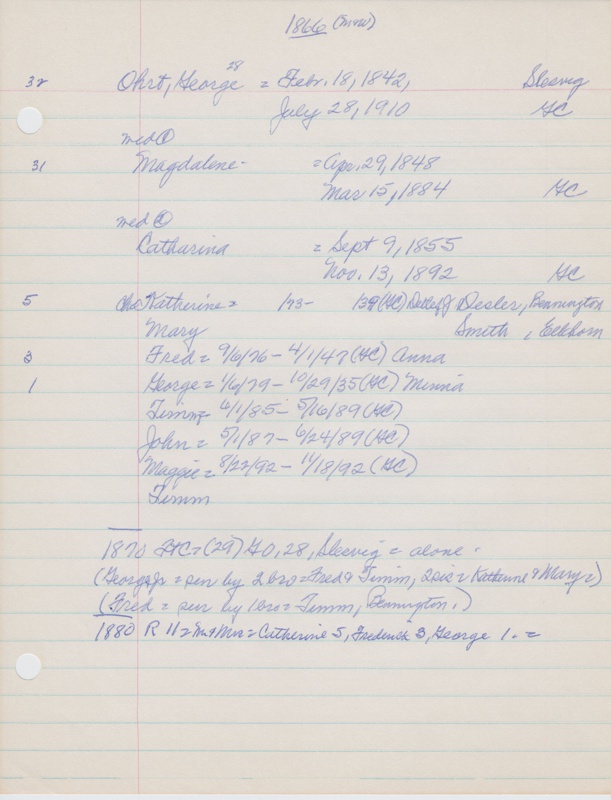 1866
28
32 Ohrt, George = Febr. 18, 1842, Slesvig
July 28, 1910 GC
med ①
31 Magdalene - = Apr. 29, 1848
Mar 15, 1884 GC
med ②
Catharina = Sept 9, 1855
Nov. 13, 1892 GC
5 Katherine = 1/93- 1/39 (GC) Detlef J Desler, Bennington
Mary Smith, Elkhorn
3 Fred = 9/6/76 - 4/1/47 (GC) Anna
1 George = 1/6/79 - 10/29/35 (GC) Minna
Timm = 6/1/85 - 5/16/89 (GC)
John = 5/1/87 - 6/24/89 (GC)
Maggie = 8/22/92 - 11/18/92 (GC)
Timm
1870 = (29) GO, 28, Slesvig = alone -
(George Jr = sur by 2 bro = Fred & Timm, 2 sis = Katherine & Mary =)
(Fred = sur by 1 bro = Timm, Bennington.)
1880 R 11 = Mr & Mrs = Catherine 5, Frederick 3, George 1. =